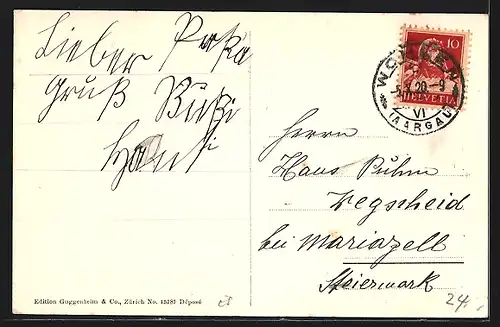 Lieber Papa
Gruß Bubi
Hans
10
HELVETIA
WOHLEN
20.-9
VI
(AARGAU)
Herrn
Hans Ruhm
Wegscheid
bei Mariazell
Steiermark
Edition Guggenheim & Co., Zürich No. 15787 Déposé
24.-